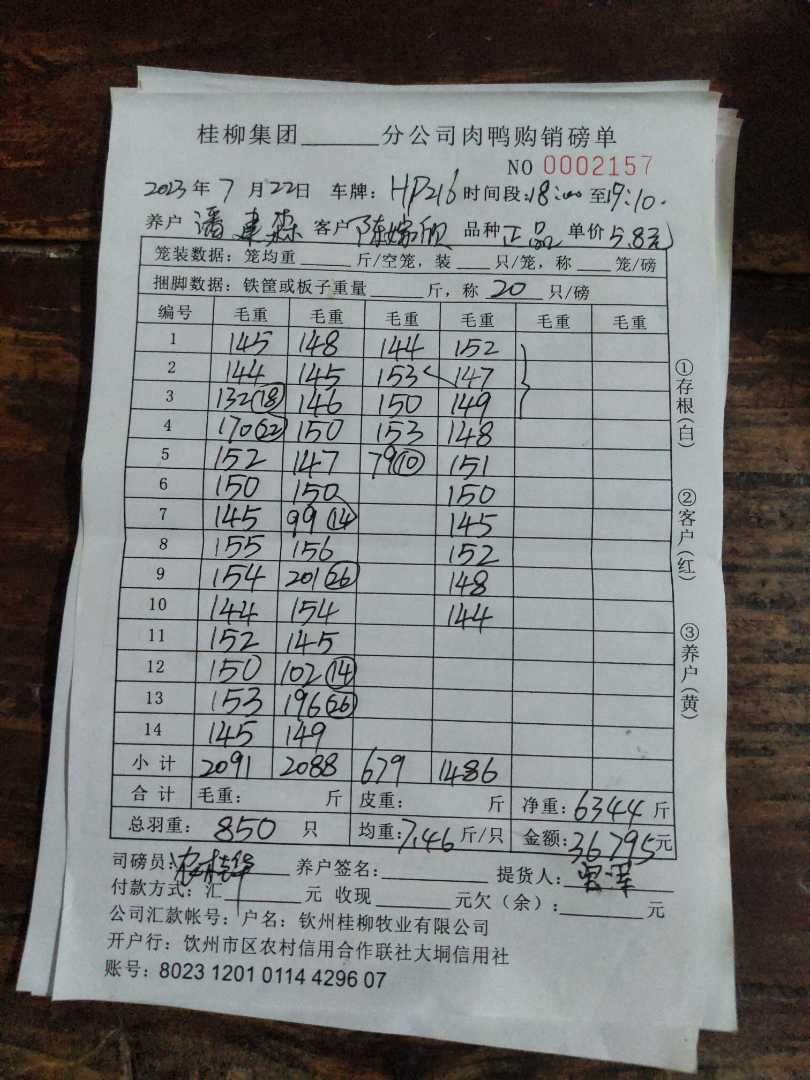 桂柳集团______分公司肉鸭购销磅单
NO 0002157
2023年7月22日 车牌:HP216 时间段:18:00至19:10.
养户 潘建森 客户 陈嫁欣 品种 正品 单价 5.8元
笼装数据:笼均重______斤/空笼,装___只/笼,称___笼/磅
捆脚数据:铁筐或板子重量______斤,称 20 只/磅
编号 毛重 毛重 毛重 毛重 毛重 毛重
1 145 148 144 152
2 144 145 153 147
3 132(18) 146 150 149
4 170(22) 150 153 148
5 152 147 79(10) 151
6 150 150 150
7 145 99(14) 145
8 155 156 152
9 154 201(26) 148
10 144 154 144
11 152 145
12 150 102(14)
13 153 196(26)
14 145 149
小计 2091 2088 679 1486
合计 毛重: 斤 皮重: 斤 净重:6344斤
总羽重:850 只 均重:7.46斤/只 金额:36795元
司磅员: 养户签名:________ 提货人:
付款方式:汇________元 收现________元欠(余):________元
公司汇款帐号:户名:钦州桂柳牧业有限公司
开户行:饮州市区农村信用合作联社大垌信用社
账号:8023 1201 0114 4296 07
①存根(白)
②客户(红)
③养户(黄)